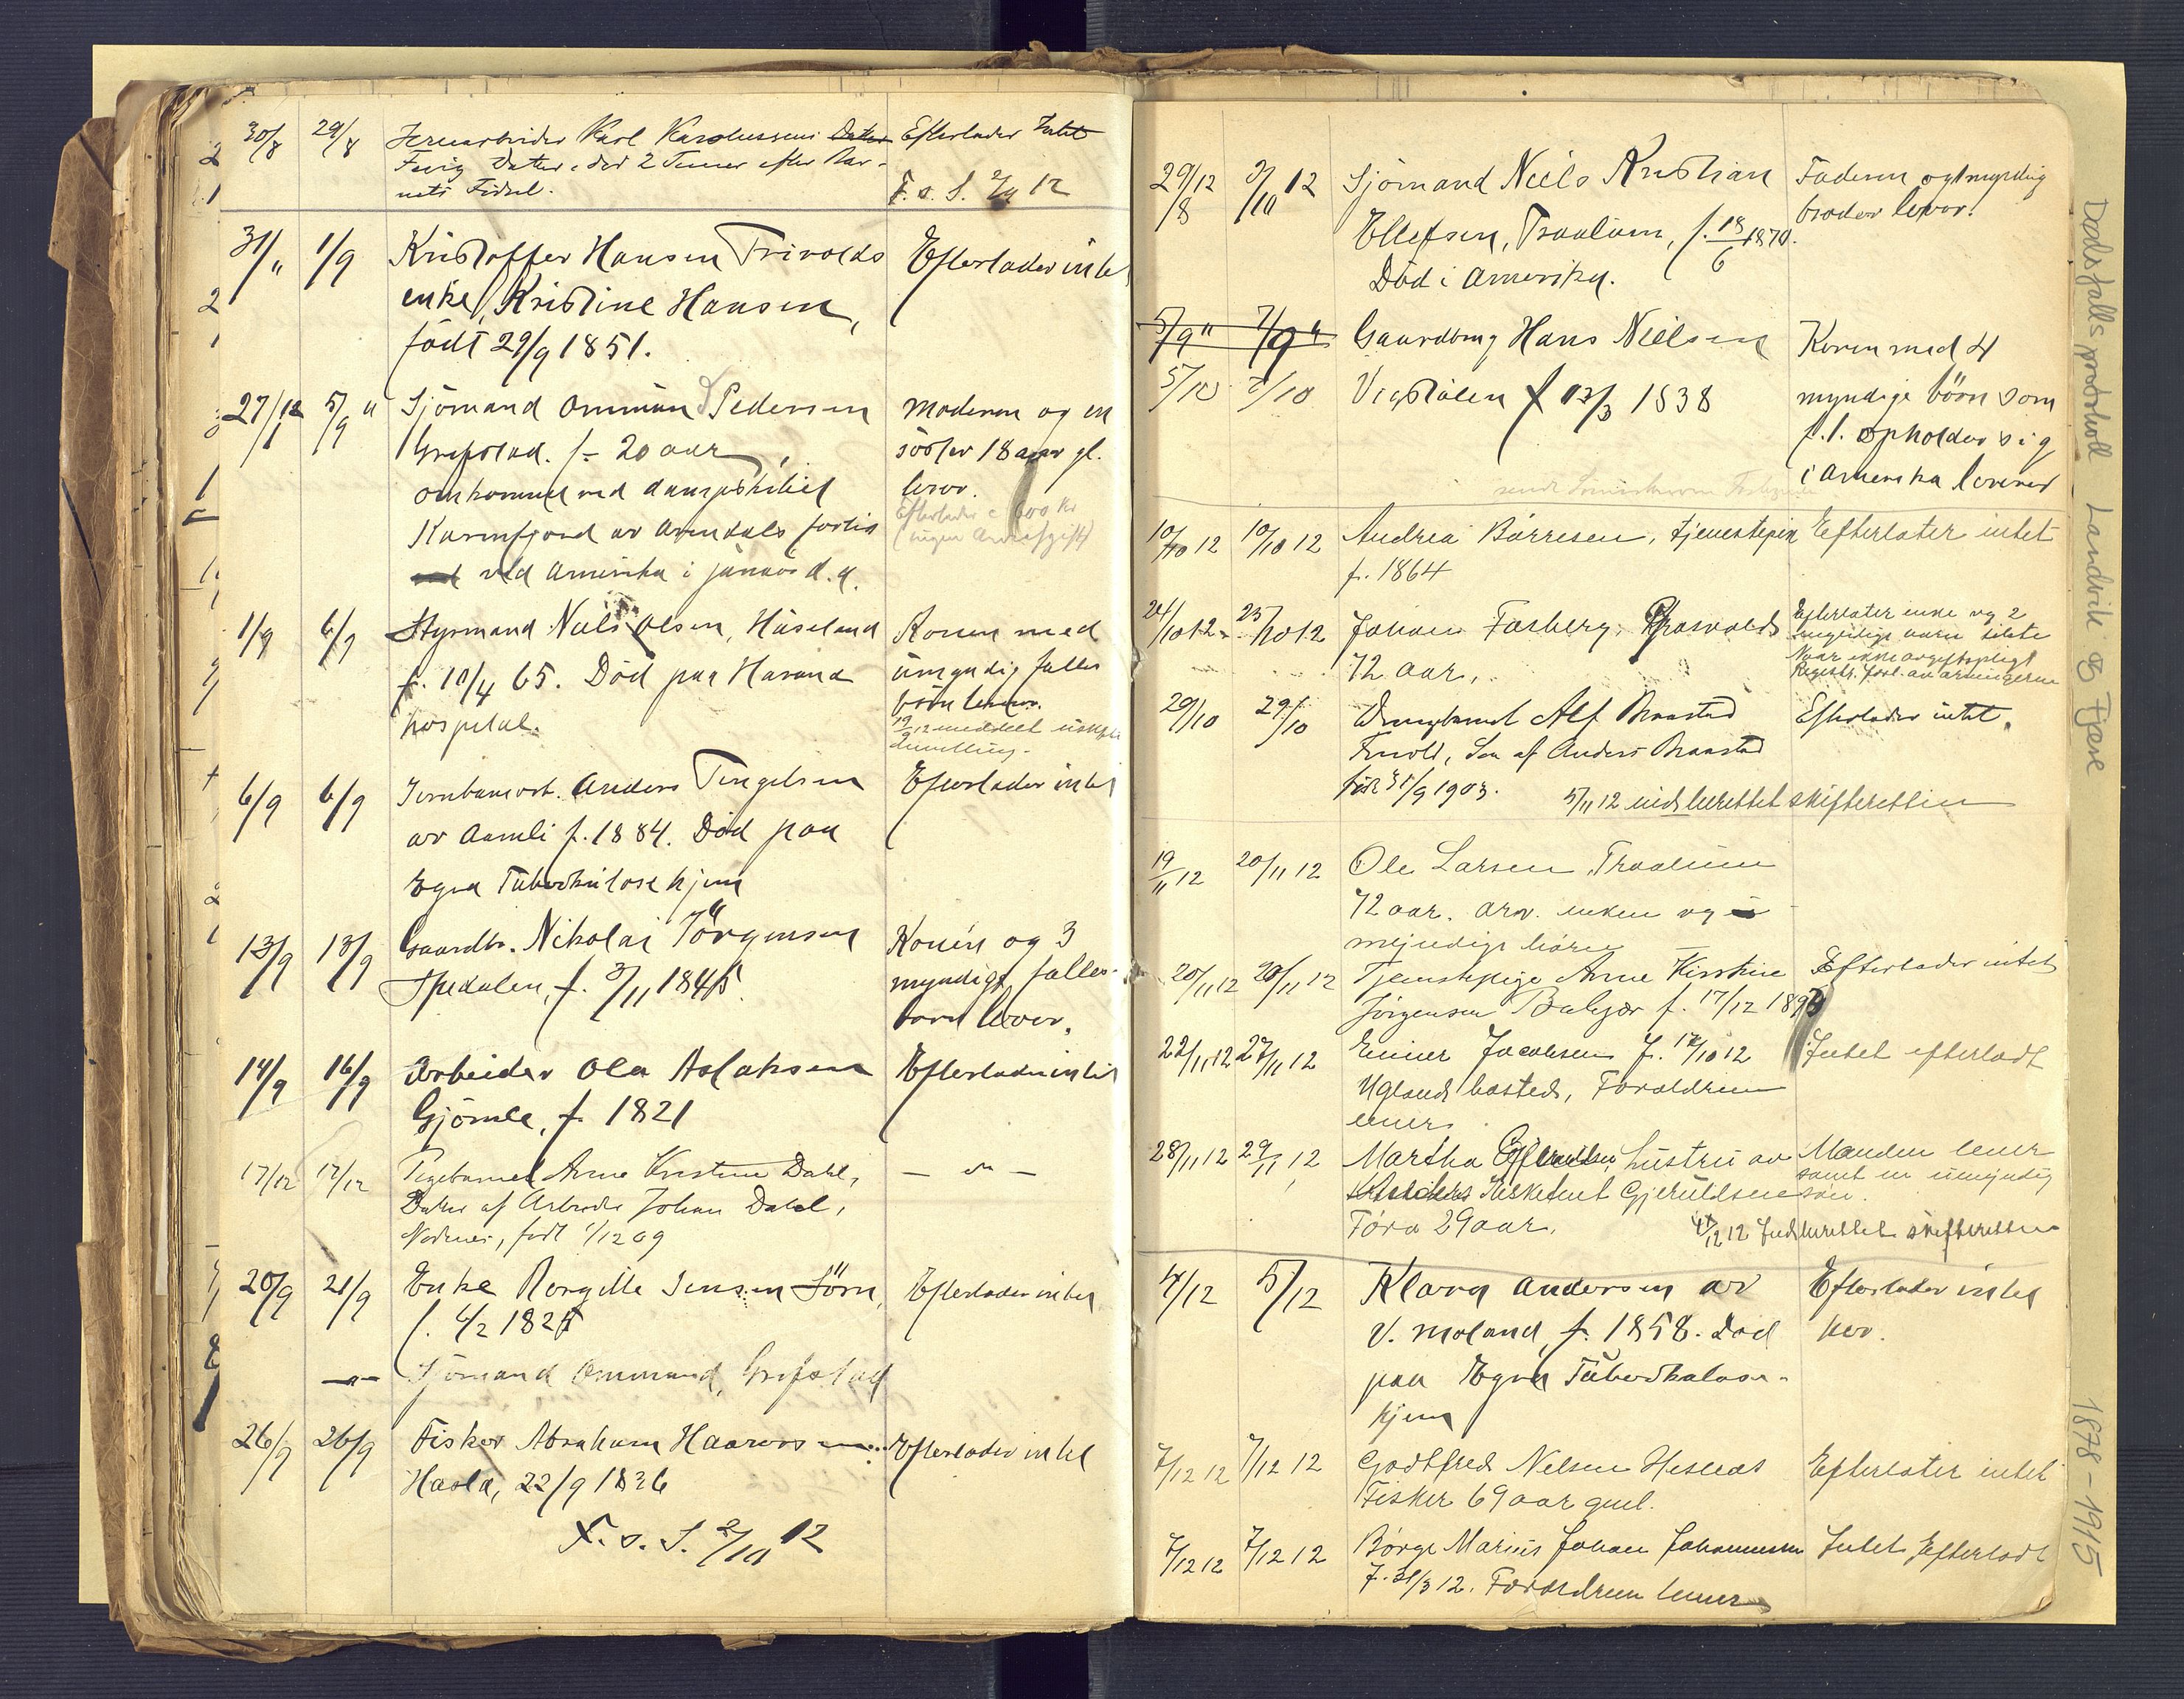 30/8 29/8 Jernarbeider Karl Karolussens Datter Efterlader Intet
Fevig Datter, død 2 Timer efter Bar-
nets Fødsel. F. s. S. 2/9 12
31/" 1/9 Kristoffer Hansen Trivolds Efterlader intet
enke, Kristine Hansen,
født 29/9 1851.
27/1 12 5/9 " Sjömand Ommund Pedersen Moderen og en
Grefstad. f. 20 aar, söster 18 aar gl.
omkommet ved dampskibet lever.
Karmfjord av Arendals forlis Efterlader c 600 Kr
ved Amerika i januar d.a. (ingen Arveafgift)
1/9 6/9 Styrmand Niels Olsen, Håseland Konen med
f. 10/4 65. Død paa Havand umyndig fælles
hospital. börn lever.
19/9 12 meddelt uskifte
6/9 6/9 Jernbanearb. Anders Tengelsen Efterlader intet
av Aamli f. 1884. Död paa
Egra Tuberkulosehjem
13/9 13/9 Gaardbr. Nikolai Törgensen Konen og 3
Spedalen, f. 3/11 1845. myndige fælles-
barn lever.
14/9 16/9 Arbeider Ola Aslaksen Efterlader intet
Gjömle, f. 1821
17/12 17/12 Pigebarnet Anne Kristine Dahl, — " —
Datter af Arbeider Johan Dahl,
født 1/12 09
20/9 21/9 Enke Borgille Jensen Sörn, Efterlader intet
f. 4/2 1825
—"— Sjömand Ommund, Grefstad
26/9 26/9 Fisker Abraham Haavorsen Efterlader intet
Hasla, 22/9 1836
F. s. S. 2/10 12
29/8 12 3/10 12 Sjömand Niels Kristian Faderen og 1 myndig
Ellefsen, Traalum, f. 18/6 1870. broder lever.
Död i Amerika.
5/9 " 7/9 " Gaardbrug Hans Nielsen Konen med 4
5/10 7/10 Vigstölen f 13/3 1838 myndige börn som
f.t. opholder sig
i Amerika lever
10/10 12 10/10 12 Andrea Børresen, tjenestepige Efterlater intet
f. 1864
24/10 12 25/10 12 Johan Forberg, Efterlater enke og 2
72 aar,
Registr. forl. av arvingerne
29/10 29/10 Drengebarnet Alf Braastad Efterlader intet.
Søn af Anders Braastad
1903. 5/11 12 indberettet skifteretten
19/11 12 20/11 12 Ole Larsen, Traalum
72 aar. arv. enken og
myndige børn
20/11 12 20/11 12 Tjenestepige Anne Kirstine Efterlader intet
Jørgensen f. 17/12 1893
22/11 12 27/11 12 Einer Jacobsen f. 12/10 12 Intet efterladt
Uglands bosted, Foreldrene
lever
28/11 12 29/11 12 Martha Gjeruldsen, hustru av Manden lever
Gjeruldsen samt en umyndig søn.
Føra 29 aar. 4/12 12 Indberettet skifteretten
4/12 5/12 Klara Andersen av Efterlader intet
V. Moland, f. 1858. Død her.
paa Egra Tuberkulose-
hjem
7/12 12 7/12 12 Godtfred Nelsen Hesnes Efterlater intet
Fisker 69 aar gml.
7/12 12 7/12 12 Børge Marius Johan Johannessen Intet Efterladt
f. 31/3 12. Foreldrene lever
Dødsfallsprotokoll Landvik og Fjære 1878 - 1915